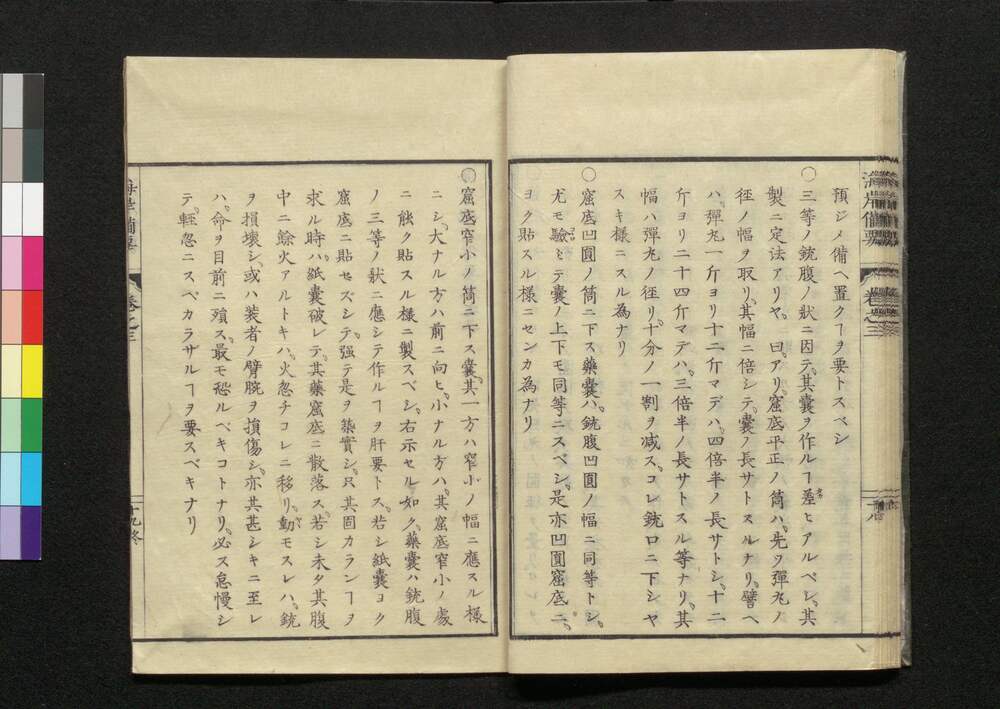 預ジメ備ヘ置クヿヲ要トスベシ
○三等ノ銃腹ノ狀ニ因テ、其囊ヲ作ルヿ差ヒアルベシ、其
製ニ定法アリヤ。曰。アリ。窟底平正ノ筒ハ、先ヲ彈丸ノ
徑ノ幅ヲ取リ、其幅ニ倍シテ、囊ノ長サトスルナリ。譬ヘ
ハ、彈丸一斤ヨリ十二斤マデハ、四倍半ノ長サトシ、十二
斤ヨリ二十四斤マデハ、三倍半ノ長サトスル等ナリ。其
幅ハ彈丸ノ徑リ、十分ノ一割ヲ減ス。コレ銃口ニ下シヤ
スキ樣ニスル為ナリ
○窟底凹圓ノ筒ニ下ス藥囊ハ、銃腹凹圓ノ幅ニ同等トシ、
尤モ驗ミテ囊ノ上下モ同等ニスベシ。是亦凹圓窟底ニ、
ヨク貼スル樣ニセンカ為ナリ
海岸備要 卷之三
○窟底窄小ノ筒ニ下ス囊、其一方ハ窄小ノ幅ニ應スル樣
ニシ、大ナル方ハ前ニ向ヒ、小ナル方ハ、其窟底窄小ノ處
ニ能ク貼スル樣ニ製スベシ。右示セル如ク、藥囊ハ銃腹
ノ三等ノ狀ニ應シテ作ルヿヲ肝要トス。若シ紙囊ヨク
窟底ニ貼セズシテ、强テ是ヲ築實シ、只其固カランヿヲ
求ル時ハ、紙囊破レテ、其藥窟底ニ散落ス。若シ未タ其腹
中ニ餘火アルトキハ、火忽チコレニ移リ、動モスレハ、銃
ヲ損壞シ、或ハ装者ノ臂腕ヲ損傷シ、亦其甚シキニ至レ
ハ、命ヲ目前ニ殞ス。最モ恐ルベキコトナリ。必ス怠慢シ
テ、輕忽ニスベカラザルヿヲ要スベキナリ
卷之三
十九終